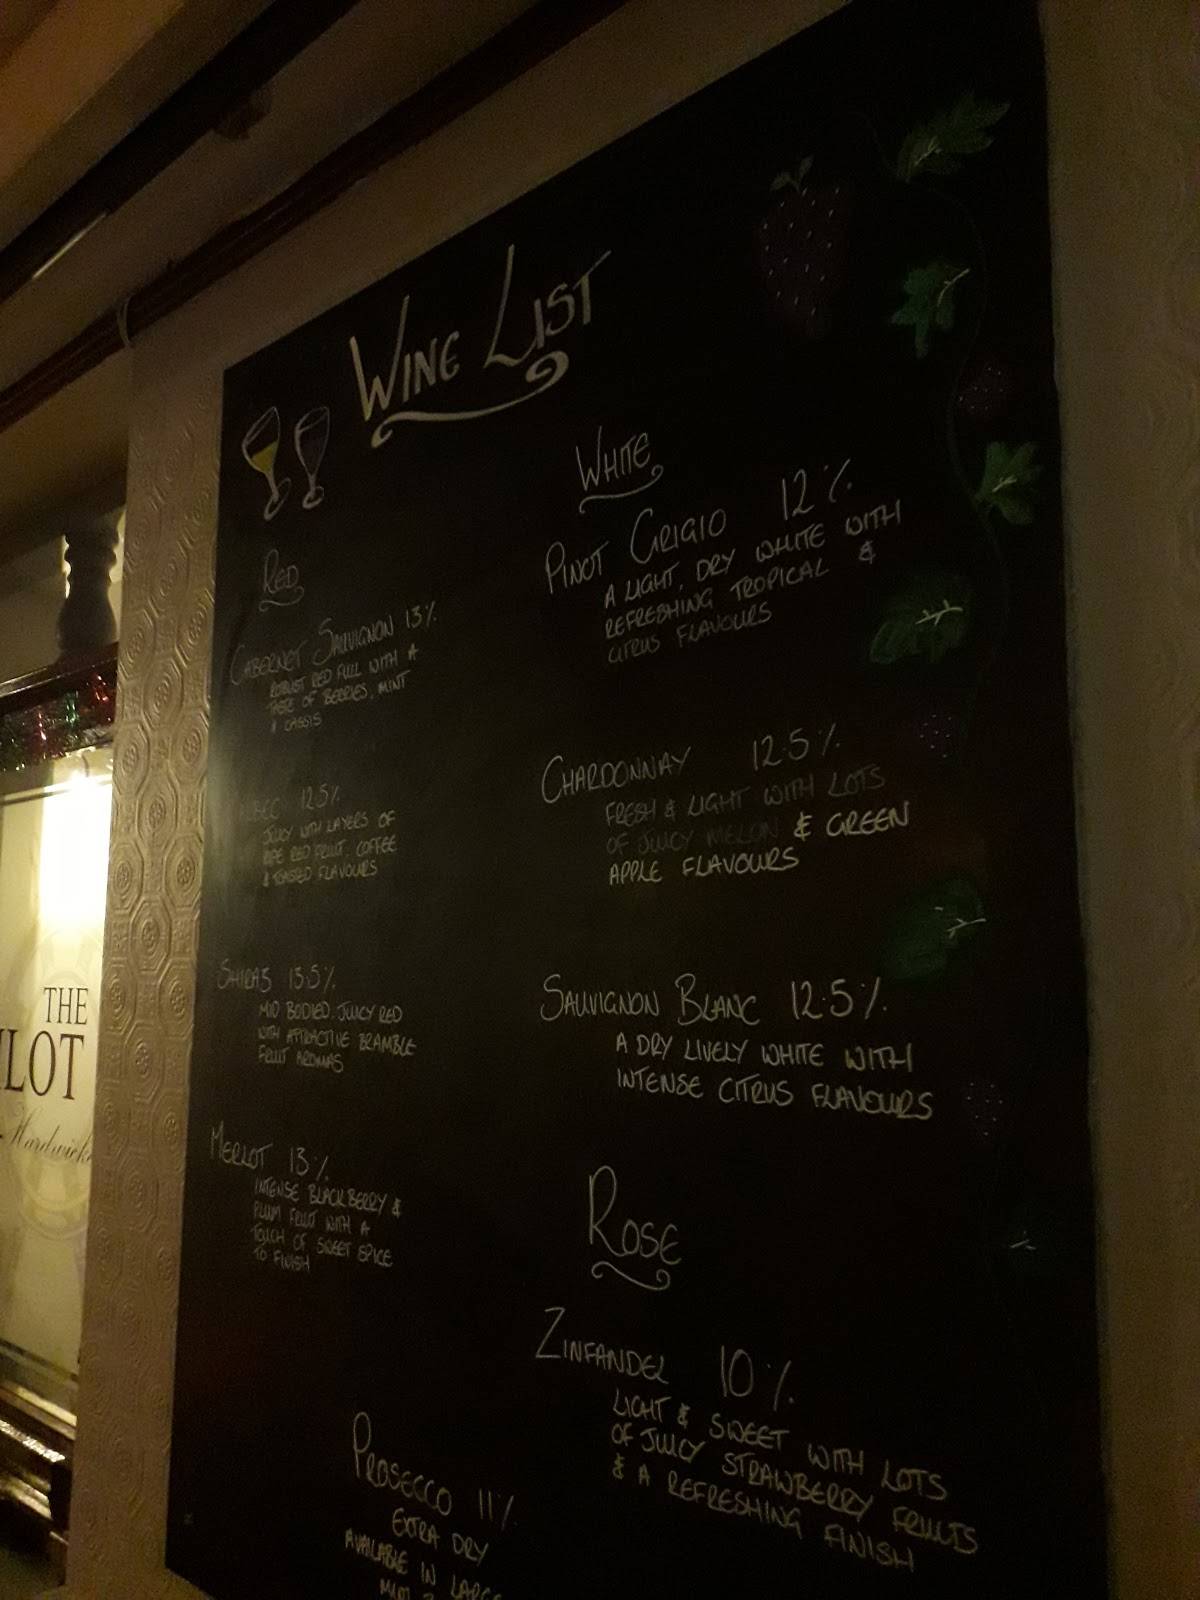 WINE LIST
RED
CABERNET SAUVIGNON 13%
ROBUST RED FULL WITH A
TASTE OF BERRIES, MINT
& CASSIS
12.5%
JUICY WITH LAYERS OF
RIPE RED FRUIT, COFFEE
& TOASTED FLAVOURS
SHIRAS 13.5%
MID BODIED, JUICY RED
WITH ATTRACTIVE BRAMBLE
FRUIT AROMAS
MERLOT 13%
INTENSE BLACKBERRY &
PLUM FRUIT WITH A
TOUCH OF SWEET SPICE
TO FINISH
WHITE
PINOT GRIGIO 12%
A LIGHT, DRY WHITE WITH
REFRESHING TROPICAL &
CITRUS FLAVOURS
CHARDONNAY 12.5%
FRESH & LIGHT WITH LOTS
OF JUICY MELON & GREEN
APPLE FLAVOURS
SAUVIGNON BLANC 12.5%
A DRY LIVELY WHITE WITH
INTENSE CITRUS FLAVOURS
ROSE
ZINFANDEL 10%
LIGHT & SWEET WITH LOTS
OF JUICY STRAWBERRY FRUITS
& A REFRESHING FINISH
PROSECCO 11%
EXTRA DRY
AVAILABLE IN LARGE
THE
LOT
Hardwick